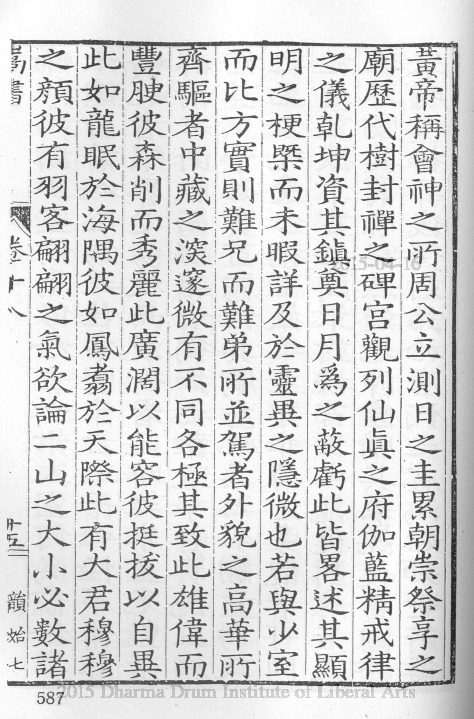 黃帝稱會神之所周公立測日之圭累朝崇祭享之
廟歷代樹封禪之碑宮觀列仙眞之府伽藍精戒律
之儀乾坤資其鎮奠日月爲之蔽虧此皆畧述其顯
明之梗槩而未暇詳及於靈異之隱微也若與少室
而比方實則難兄而難弟所並駕者外貌之高華所
齊驅者中藏之深邃微有不同各極其致此雄偉而
豐腴彼森削而秀麗此廣濶以能容彼挺拔以自異
此如龍眠於海隅彼如鳳翥於天際此有大君穆穆
之顏彼有羽客翩翩之氣欲論二山之大小必數諸
嵩書
卷十八
十五
韻始七
587
2015-04-16
2015 Dharma Drum Institute of Liberal Arts